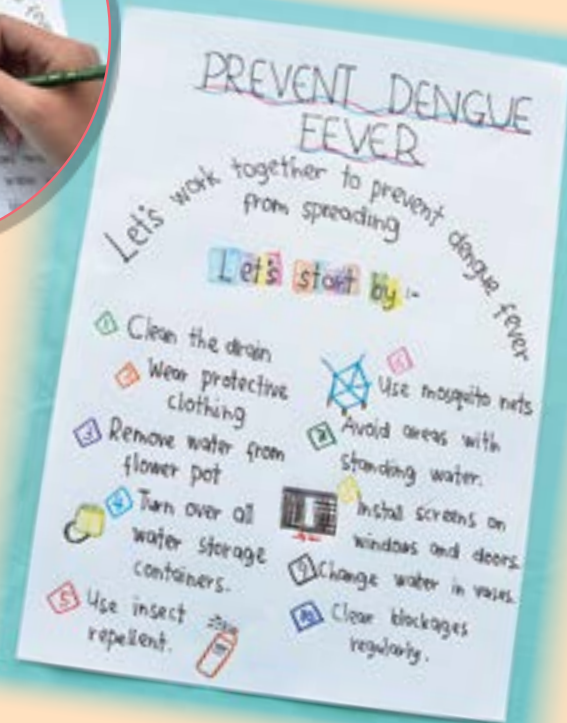 PREVENT DENGUE
FEVER
Let's work together to prevent dengue fever
from spreading
Let's start by:-
1 Clean the drain
2 Wear protective
clothing
3 Remove water from
flower pot
4 Turn over all
water storage
containers.
5 Use insect
repellent.
6 Use mosquito nets
7 Avoid areas with
standing water.
8 Install screens on
windows and doors.
9 Change water in vases.
10 Clear blockages
regularly.